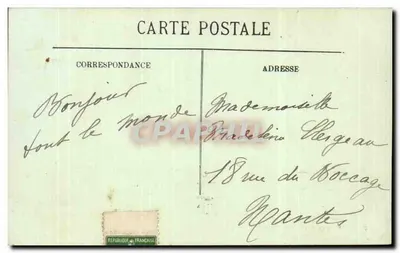 CARTE POSTALE
CORRESPONDANCE
ADRESSE
Bonjour
tout le monde
Mademoiselle
18 rue du Boccage
Nantes
CPARAMA
REPUBLIQUE FRANÇAISE